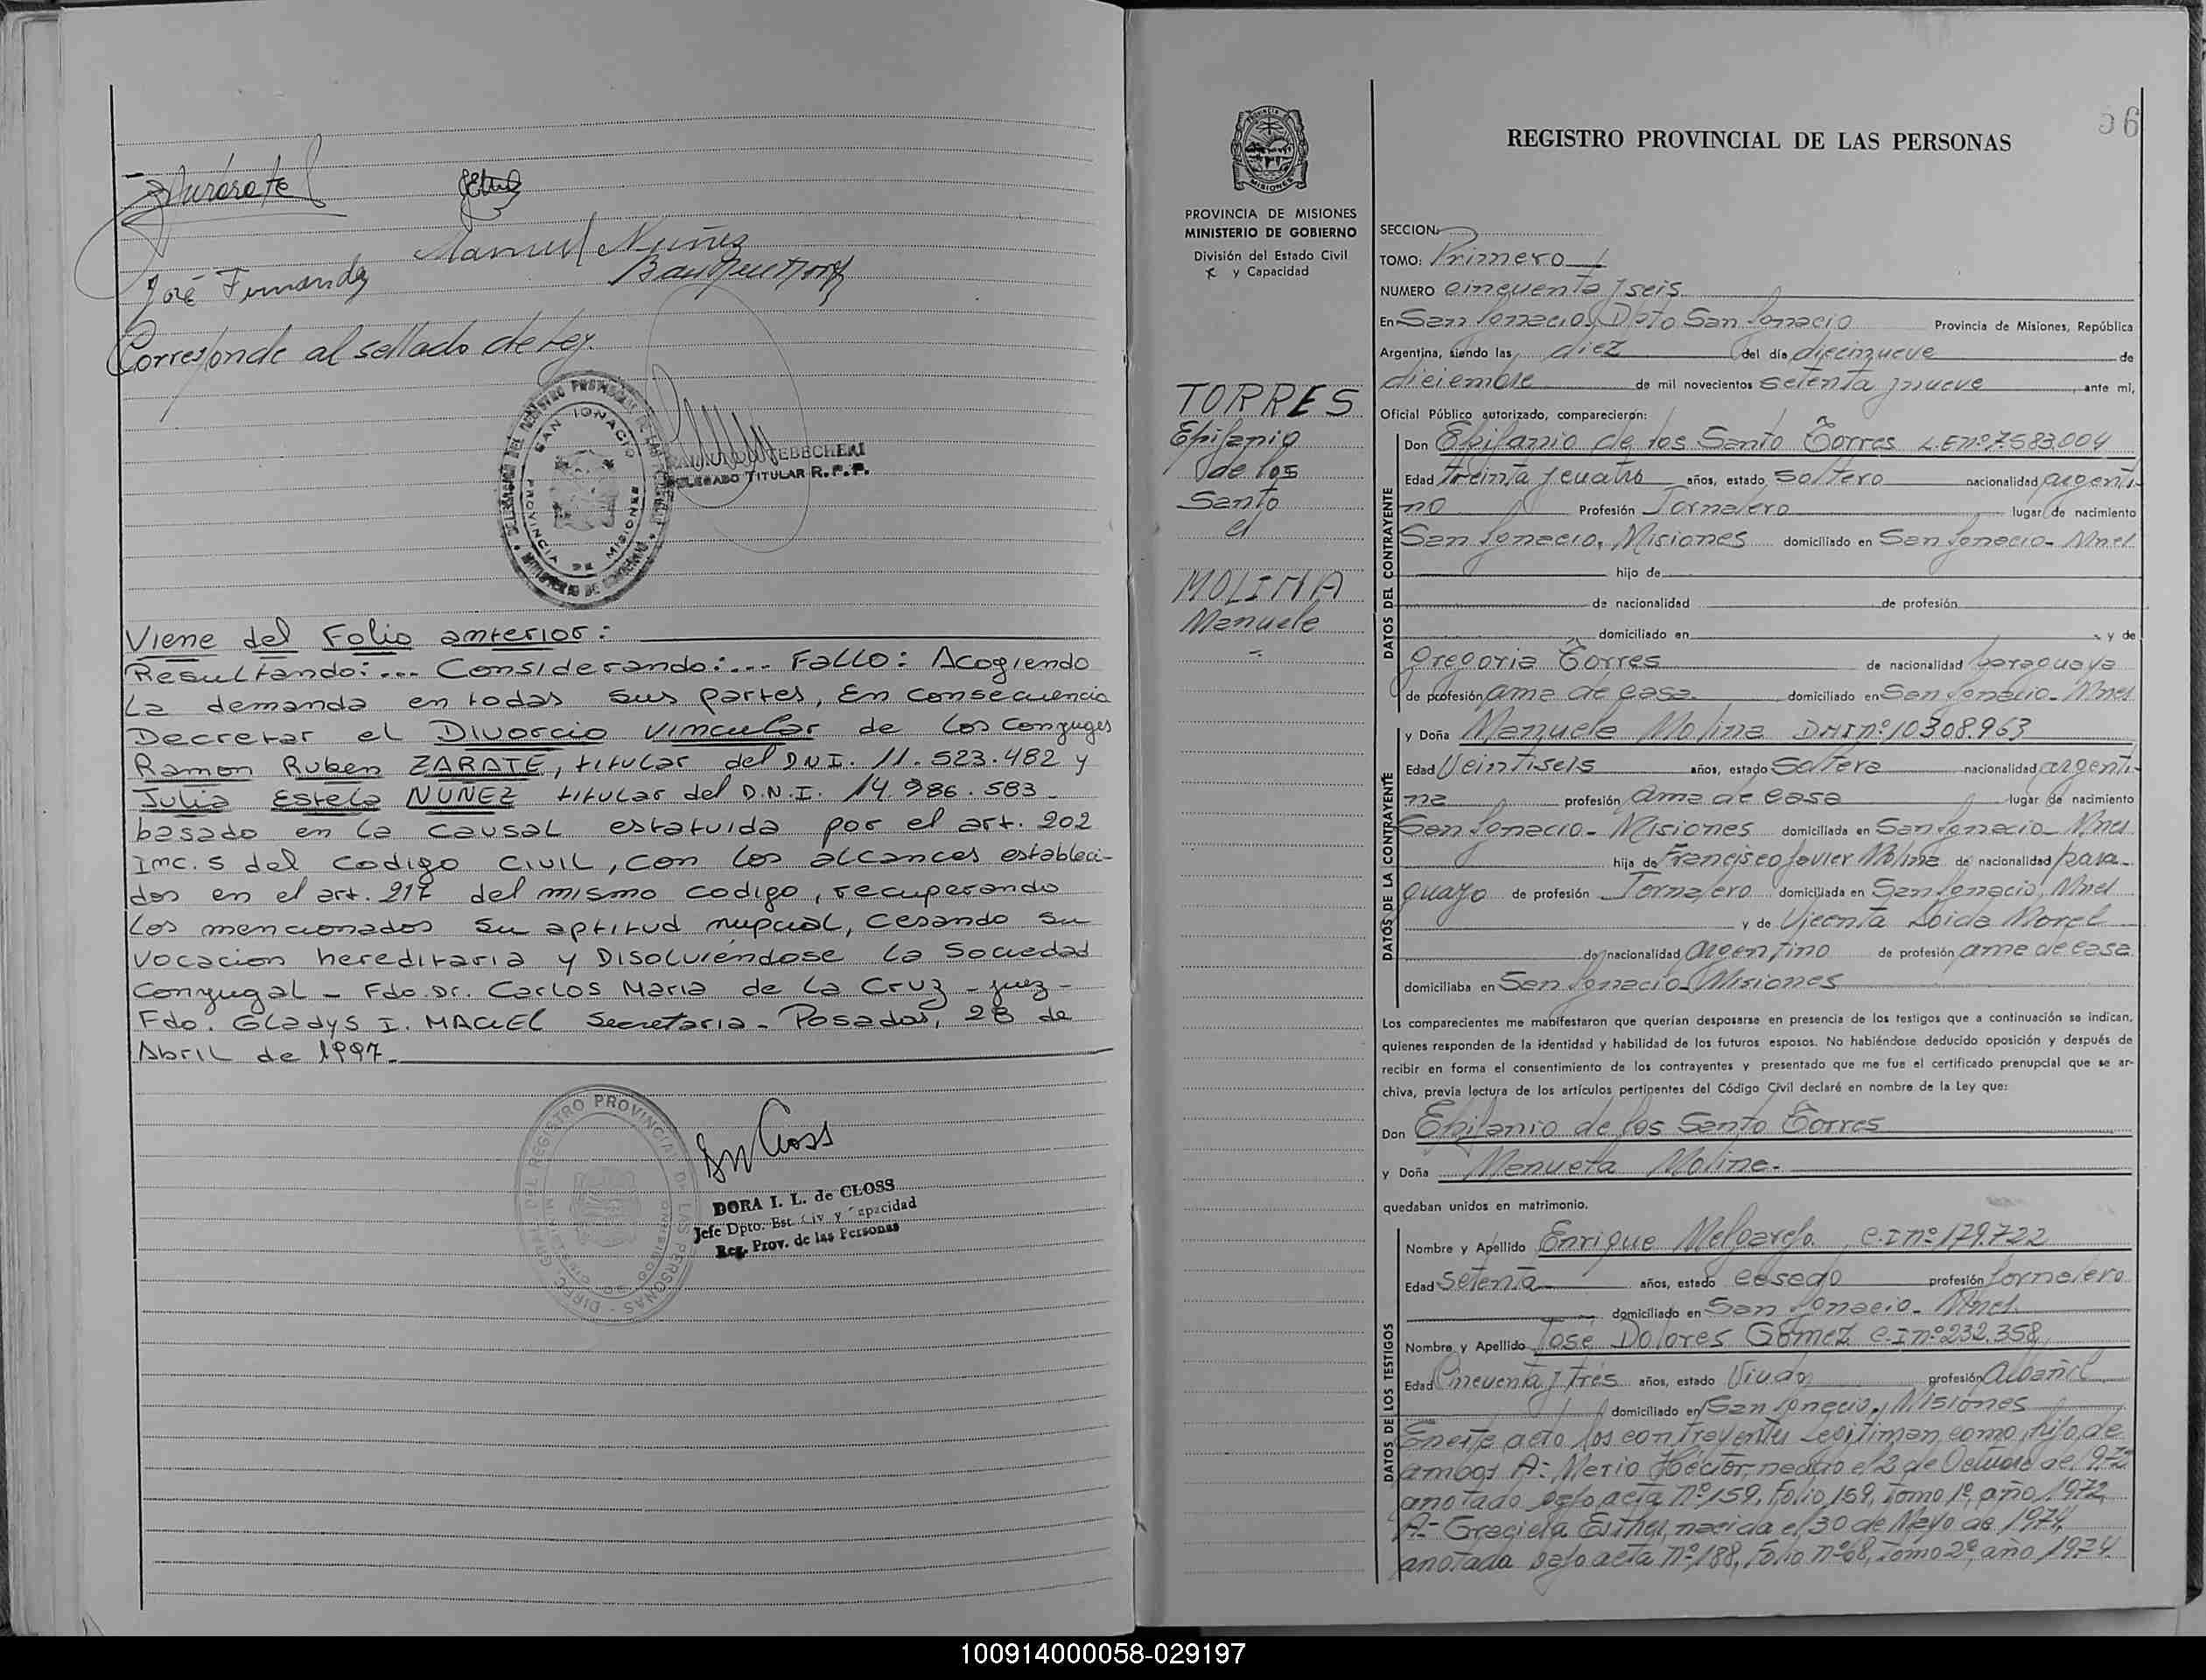 Zarate
José Fernandez
Manuel Nuñez
Corresponde al sellado de Ley.
SAN IGNACIO
PROVINCIA DE MISIONES
DELEGADO TITULAR R. P. P.
Viene del Folio anterior:
Resultando:... Considerando:... Fallo: Acogiendo
La demanda en todas sus partes, En consecuencia
Decretar el Divorcio Vincular de los conyuges
Ramon Ruben ZARATE, titular del D.N.I. 11.523.482 y
Julia Estela NUÑEZ titular del D.N.I. 14.986.583-
basado en la causal estatuida por el art. 202
Inc. 5 del codigo civil, con los alcances estableci-
dos en el art. 217 del mismo codigo, recuperando
los mencionados su aptitud nupcial, cesando su
vocacion hereditaria y Disolviéndose la Sociedad
Conyugal - Fdo. Dr. Carlos Maria de la Cruz - juez -
Fdo. Gladys I. MACIEL Secretaria - Posadas, 28 de
Abril de 1997.
DORA I. L. de CLOSS
Jefe Dpto. Est. Civ. y Capacidad
Reg. Prov. de las Personas
56
PROVINCIA DE MISIONES
MINISTERIO DE GOBIERNO
División del Estado Civil
y Capacidad
TORRES
Epifanio
de los
Santo
el
MOLINA
Manuela
REGISTRO PROVINCIAL DE LAS PERSONAS
SECCION:
TOMO: Primero
NUMERO cincuenta y seis
En San Ignacio, Dpto San Ignacio Provincia de Misiones, República
Argentina, siendo las diez del día diecinueve de
diciembre de mil novecientos setenta y nueve, ante mí,
Oficial Público autorizado, comparecieron:
DATOS DEL CONTRAYENTE
Don Epifanio de los Santo Torres L.E nº 7.583.004
Edad treinta y cuatro años, estado Soltero nacionalidad argenti-
no Profesión Jornalero lugar de nacimiento
San Ignacio, Misiones domiciliado en San Ignacio - Mnes
hijo de
de nacionalidad de profesión
domiciliado en y de
Gregoria Torres de nacionalidad paraguaya
de profesión ama de casa domiciliado en San Ignacio - Mnes
DATOS DE LA CONTRAYENTE
y Doña Manuela Molina DNI nº 10.308.963
Edad Veintiseis años, estado Soltera nacionalidad argenti-
na profesión ama de casa lugar de nacimiento
San Ignacio - Misiones domiciliada en San Ignacio - Mnes
hija de Francisco Javier Molina de nacionalidad para-
guayo de profesión Jornalero domiciliada en San Ignacio, Mnes
y de Vicenta Loida Morel
de nacionalidad argentino de profesión ama de casa
domiciliaba en San Ignacio - Misiones
Los comparecientes me manifestaron que querían desposarse en presencia de los testigos que a continuación se indican,
quienes responden de la identidad y habilidad de los futuros esposos. No habiéndose deducido oposición y después de
recibir en forma el consentimiento de los contrayentes y presentado que me fue el certificado prenupcial que se ar-
chiva, previa lectura de los artículos pertinentes del Código Civil declaré en nombre de la Ley que:
Don Epifanio de los Santo Torres
y Doña Manuela Molina -
quedaban unidos en matrimonio.
DATOS DE LOS TESTIGOS
Nombre y Apellido Enrique Melgarejo C.I nº 179.722
Edad Setenta años, estado casado profesión Jornalero
domiciliado en San Ignacio - Mnes
Nombre y Apellido José Dolores Gómez C.I nº 232.358
Edad Cincuenta y tres años, estado Viudo profesión albañil
domiciliado en San Ignacio, Misiones
En este acto los contrayentes Legitiman como hijo de
ambos A: Mario Hector, nacido el 2 de Octubre de 972
anotado bajo acta nº 159, Folio 159, Tomo 1º, año 1972,
A- Graciela Esther, nacida el 30 de Mayo de 1974,
anotada bajo acta nº 188, Folio nº 68, Tomo 2º, año 1974.
100914000058-029197